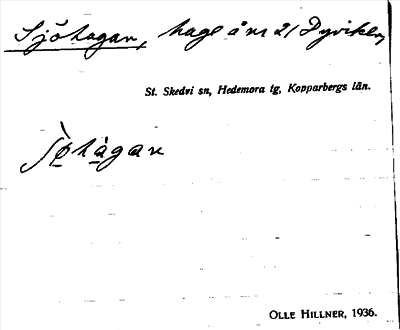 Sjöhagan, hage å nr 21 Dyviken,
St. Skedvi sn, Hedemora tg, Kopparbergs län.
OLLE HILLNER, 1936.